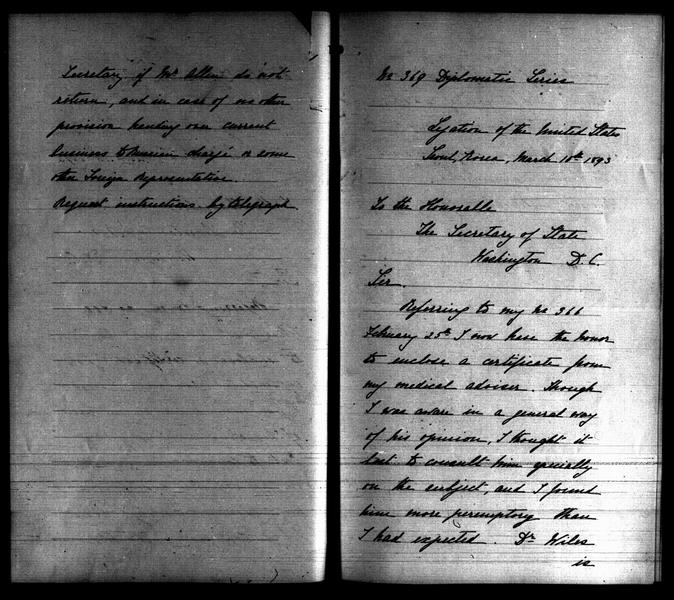 Secretary if Mr Allen do not
return, and in case of no other
provision handing over current
business to Russian chargé or some
other Foreign Representative.
Request instructions by telegraph
No 369 Diplomatic Series
Legation of the United States
Seoul, Korea, March 10th 1893
To the Honorable
The Secretary of State
Washington D. C.
Sir.
Referring to my No 366
February 25th I now have the honor
to enclose a certificate from
my medical adviser. Though
I was aware in a general way
of his opinion, I thought it
best to consult him specially
on the subject, and I found
him more peremptory than
I had expected. Dr Wiles
is